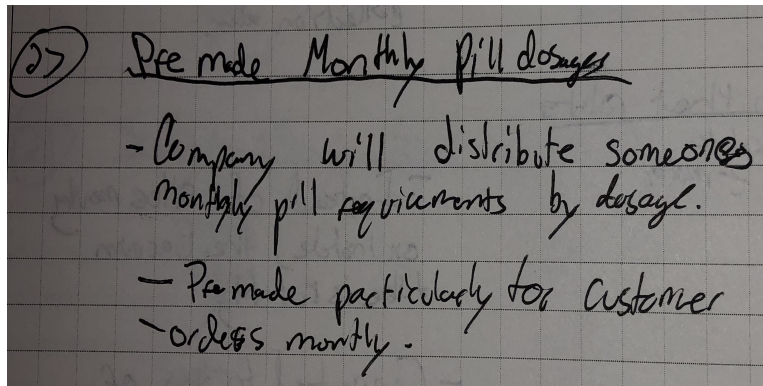 2> Premade Monthly Pill dosages
- Company will distribute someones
monthly pill requirements by dosage.
- Premade particularly for customer
- orders montly.